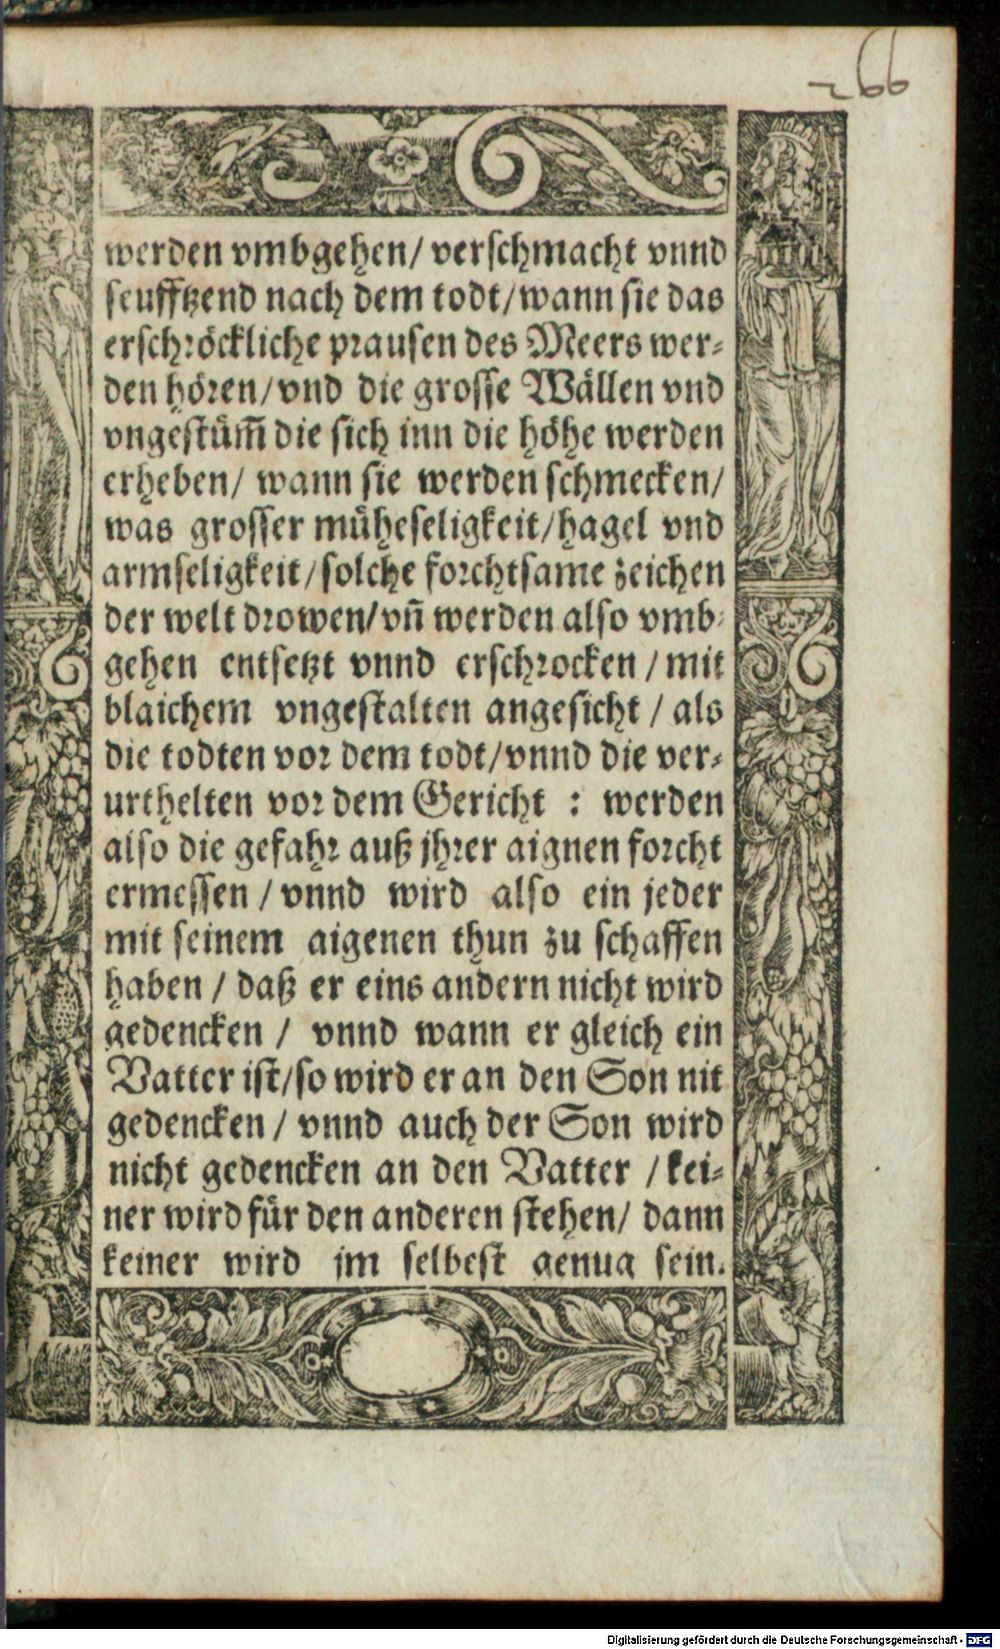 266
werden vmbgehen/ verschmacht vnnd
seufftzend nach dem todt/wann sie das
erschröckliche prausen des Meers wer-
den hören/vnd die grosse Wällen vnd
vngestüm̃ die sich inn die höhe werden
erheben/ wann sie werden schmecken/
was grosser müheseligkeit/hagel vnd
armseligkeit/solche forchtsame zeichen
der welt drowen/vñ werden also vmb-
gehen entsetzt vnnd erschrocken / mit
blaichem vngestalten angesicht / als
die todten vor dem todt/vnnd die ver-
urthelten vor dem Gericht : werden
also die gefahr auß jhrer aignen forcht
ermessen / vnnd wird also ein jeder
mit seinem aigenen thun zu schaffen
haben / daß er eins andern nicht wird
gedencken / vnnd wann er gleich ein
Vatter ist/so wird er an den Son nit
gedencken / vnnd auch der Son wird
nicht gedencken an den Vatter / kei-
ner wird für den anderen stehen/ dann
keiner wird jm selbest genug sein.
Digitalisierung gefördert durch die Deutsche Forschungsgemeinschaft - DFG